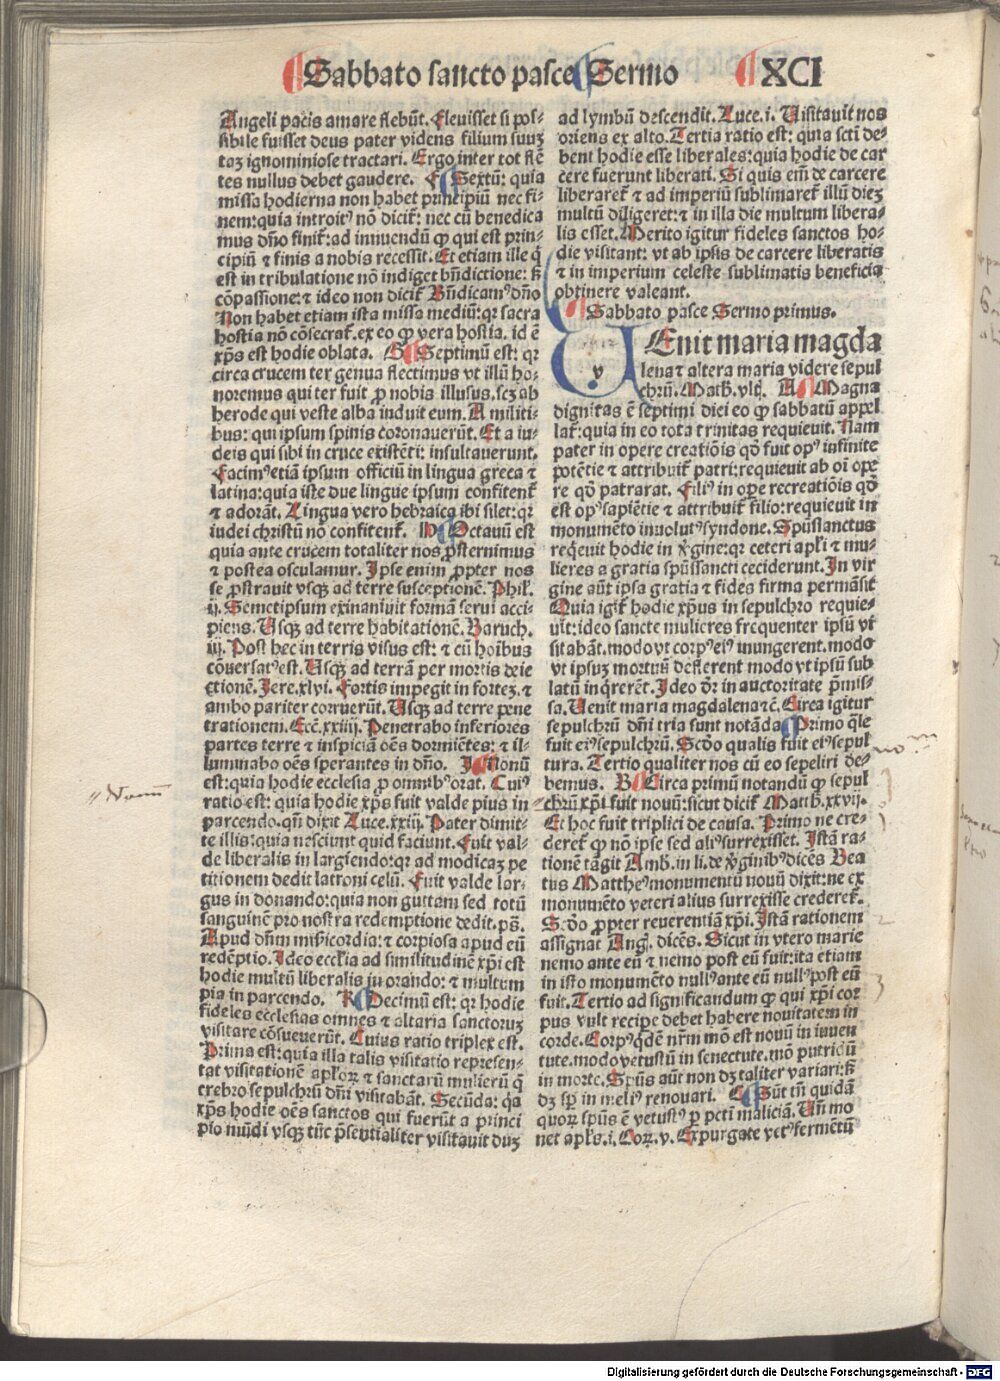 Sabbato sancto pasce Sermo XCI
Angeli pacis amare flebūt. Fleuisset si pos-
sibile fuisset deus pater videns filium suuʒ
taʒ ignominiose tractari. Ergo inter tot flē
tes nullus debet gaudere. F Sextū: quia
missa hodierna non habet principiū nec fi-
nem: quia introitꝰ nō dicit̄: nec cū benedica
mus dn̄o finit̄: ad innuendū ꝙ qui est prin-
cipiū ⁊ finis a nobis recessit. Et etiam ille q̇
est in tribulatione nō indiget bn̄dictione: sꝫ
cōpassione: ⁊ ideo non dicit̄ Bn̄dicamꝰ dn̄o
Non habet etiam ista missa mediū: qꝛ sacra
hostia nō cōsecrat̄. ex eo ꝙ vera hostia. id ē
xp̄s est hodie oblata. G Septimū est: qꝛ
circa crucem ter genua flectimus vt illū ho-
noremus qui ter fuit ꝓ nobis illusus. scꝫ ab
herode qui veste alba induit eum. A militi-
bus: qui ipsum spinis coronauerūt. Et a iu-
deis qui sibi in cruce existēti: insultauerunt.
Facimꝰ etiā ipsum officiū in lingua greca ⁊
latina: quia iste due lingue ipsum confitent̄
⁊ adorāt. Lingua vero hebraica ibi silet: qꝛ
iudei christū nō confitent̄. H Octauū est
quia ante crucem totaliter nos ꝓsternimus
⁊ postea osculamur. Ipse enim ꝓpter nos
se ꝓstrauit vsqꝫ ad terre susceptionē. Phil.
ij. Semetipsum exinaniuit formā serui acci-
piens. Usqꝫ ad terre habitationē. Baruch.
iij. Post hec in terris visus est: ⁊ cū hoībus
cōuersatꝰ est. Usqꝫ ad terrā per mortis deie
ctionē. Jere. xlvi. Fortis impegit in forteʒ. ⁊
ambo pariter corruerūt. Usqꝫ ad terre pene
trationem. Ecc̄. xxiiij. Penetrabo inferiores
partes terre ⁊ inspiciā oēs dormiētes: ⁊ il-
luminabo oēs sperantes in dn̄o. J Nonū
est: quia hodie ecclesia ꝓ omnibꝰ orat. Cuiꝰ
ratio est: quia hodie xp̄s fuit valde pius in
parcendo. qn̄ dixit Luce. xxiij. Pater dimit-
te illis: quia nesciunt quid faciunt. Fuit val-
de liberalis in largiendo: qꝛ ad modicaʒ pe
titionem dedit latroni celū. Fuit valde lar-
gus in donando: quia non guttam sed totū
sanguinē pro nostra redemptione dedit. ps̄.
Apud dn̄m misericordia: ⁊ copiosa apud eū
redēptio. Ideo ecclīa ad similitudinē xp̄i est
hodie multū liberalis in orando: ⁊ multum
pia in parcendo. K Decimū est: qꝛ hodie
fideles ecclesias omnes ⁊ altaria sanctoruʒ
visitare cōsueuerūt. Cuius ratio triplex est.
Prima est: quia illa talis visitatio represen-
tat visitationē apl̄oꝝ ⁊ sanctarū mulierū q̄
crebro sepulchrū dn̄i visitabāt. Secūda: q̇a
xp̄s hodie oēs sanctos qui fuerūt a princi
pio mūdi vsqꝫ tūc p̄sentialiter visitauit duʒ
ad lymbū descendit. Luce. i. Uisitauit nos
oriens ex alto. Tertia ratio est: quia sctī de-
bent hodie esse liberales: quia hodie de car
cere fuerunt liberati. Si quis em̄ de carcere
liberaret̄ ⁊ ad imperiū sublimaret̄ illū dieʒ
multū diligeret: ⁊ in illa die multum libera-
lis esset. Merito igitur fideles sanctos ho-
die visitant: vt ab ipsis de carcere liberatis
⁊ in imperium celeste sublimatis beneficia
obtinere valeant.
Sabbato pasce Sermo primus.
UEnit maria magda
lena ⁊ altera maria videre sepul
chrū. Math. vlt̄. A Magna
dignitas ē septimi diei eo ꝙ sabbatū appel
lat̄: quia in eo tota trinitas requieuit. Nam
pater in opere creatiōis qd̄ fuit opꝰ infinite
potētie ⁊ attribuit̄ patri: requieuit ab oī ope
re qd̄ patrarat. Filiꝰ in ope recreatiōis qd̄
est opꝰ sapiētie ⁊ attribuit̄ filio: requieuit in
monumēto inuolutꝰ syndone. Spūssanctus
reqeuit hodie in v̄gine: qꝛ ceteri apl̄i ⁊ mu-
lieres a gratia spūssancti ceciderunt. In vir
gine aūt ipsa gratia ⁊ fides firma permāsit
Quia igit̄ hodie xp̄us in sepulchro requie-
uit: ideo sancte mulieres frequenter ipsū vi
sitabāt. modo vt corpꝰ eiꝰ inungerent. modo
vt ipsuʒ mortuū deflerent modo vt ipsū sub
latū inq̄rerēt. Ideo dr̄ in auctoritate p̄mis-
sa. Uenit maria magdalena ⁊c̄. Circa igitur
sepulchrū dn̄i tria sunt notāda Primo q̄le
fuit eiꝰ sepulchrū. Scd̄o qualis fuit eiꝰ sepul
tura. Tertio qualiter nos cū eo sepeliri de-
bemus. B Circa primū notandū ꝙ sepul
chrū xp̄i fuit nouū: sicut dicit̄ Matth. xxvij.
Et hoc fuit triplici de causa. Primo ne cre-
deret̄ ꝙ nō ipse sed aliꝰ surrexisset. Istā ra-
tionē tāgit Amb. in li. de v̄ginibꝰ dicēs Bea
tus Mattheꝰ monumentū nouū dixit: ne ex
monumēto veteri alius surrexisse crederet̄.
Scd̄o ꝓpter reuerentiā xp̄i. Istā rationem
assignat Aug. dicēs. Sicut in vtero marie
nemo ante eū ⁊ nemo post eū fuit: ita etiam
in isto monumēto nullꝰ ante eū nullꝰ post eū
fuit. Tertio ad significandum ꝙ qui xp̄i cor
pus vult recipe debet habere nouitatem in
corde. Corpꝰ qd̄ē nr̄m mō est nouū in iuuen
tute. modo vetustū in senectute. mō putridū
in morte. Spūs aūt non dʒ taliter variari: sꝫ
dʒ sp̄ in meliꝰ renouari. C Sūt tn̄ quidā
quoꝝ spūs ē vetustꝰ ꝓ pctī maliciā. Un̄ mo
net apl̄s. i. Coꝝ. v. Expurgate vetꝰ fermētū
Digitalisierung gefördert durch die Deutsche Forschungsgemeinschaft - DFG